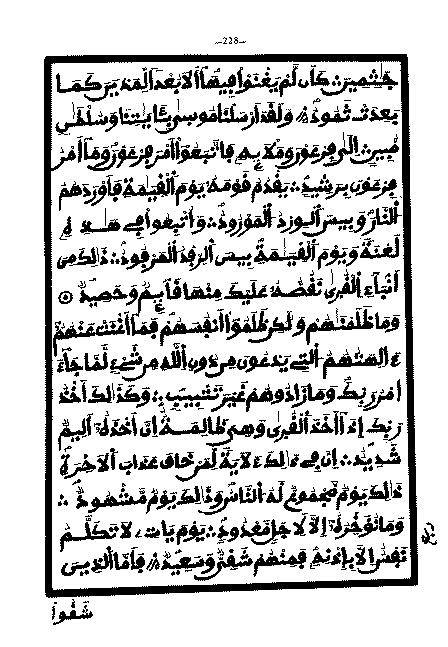 –228–
جٰثمين كأن لم يغنوا فيها ألا بعدا لمدين كما
بعدت ثمود ولقد أرسلنا موسى بـٔايٰتنا وسلطٰن
مبين الى فرعون وملإيه فاتبعوا أمر فرعون وما أمر
فرعون برشيد يقدم قومه يوم القيٰمة فأوردهم
النار وبيس الورد المورود وأتبعوا في هٰذه
لعنة ويوم القيٰمة بيس الرفد المرفود ذٰلك من
أنباء القرى نقصه عليك منها قايم وحصيد
وما ظلمنٰهم ولٰكن ظلموا أنفسهم فما أغنت عنهم
ءالهتهم التي يدعون من دون الله من شيء لما جاء
امر ربك وما زادوهم غير تتبيب وكذٰلك أخذ
ربك إذا أخذ القرى وهي ظٰلمة إن أخذه أليم
شديد إن في ذٰلك لأية لمن خاف عذاب الأخرة
ذٰلك يوم مجموع له الناس وذٰلك يوم مشهود
وما نؤخره إلا لأجل معدود يوم يات لا تكلم
نفس الا بإذنه فمنهم شقي وسعيد فأما الذين
شقوا